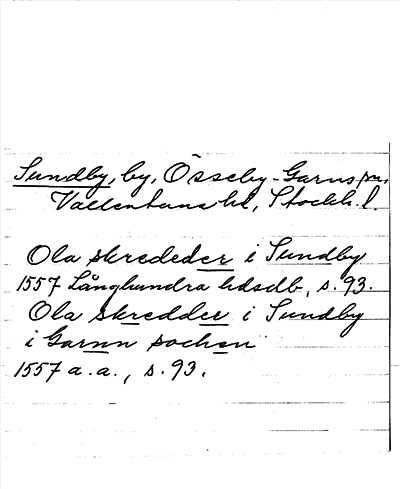 Sundby, by, Össeby-Garns sn,
Vallentuna hd, Stockh. l.
Ola skrededer i Sundby
1557 Långhundra hdsdb, s. 93.
Ola skredder i Sundby
i Garnn sochen
1557 a.a., s. 93.